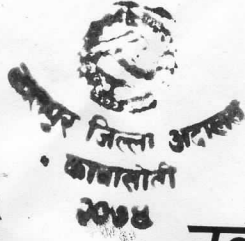 जिल्ला अदालत
कावासोती
२०७४